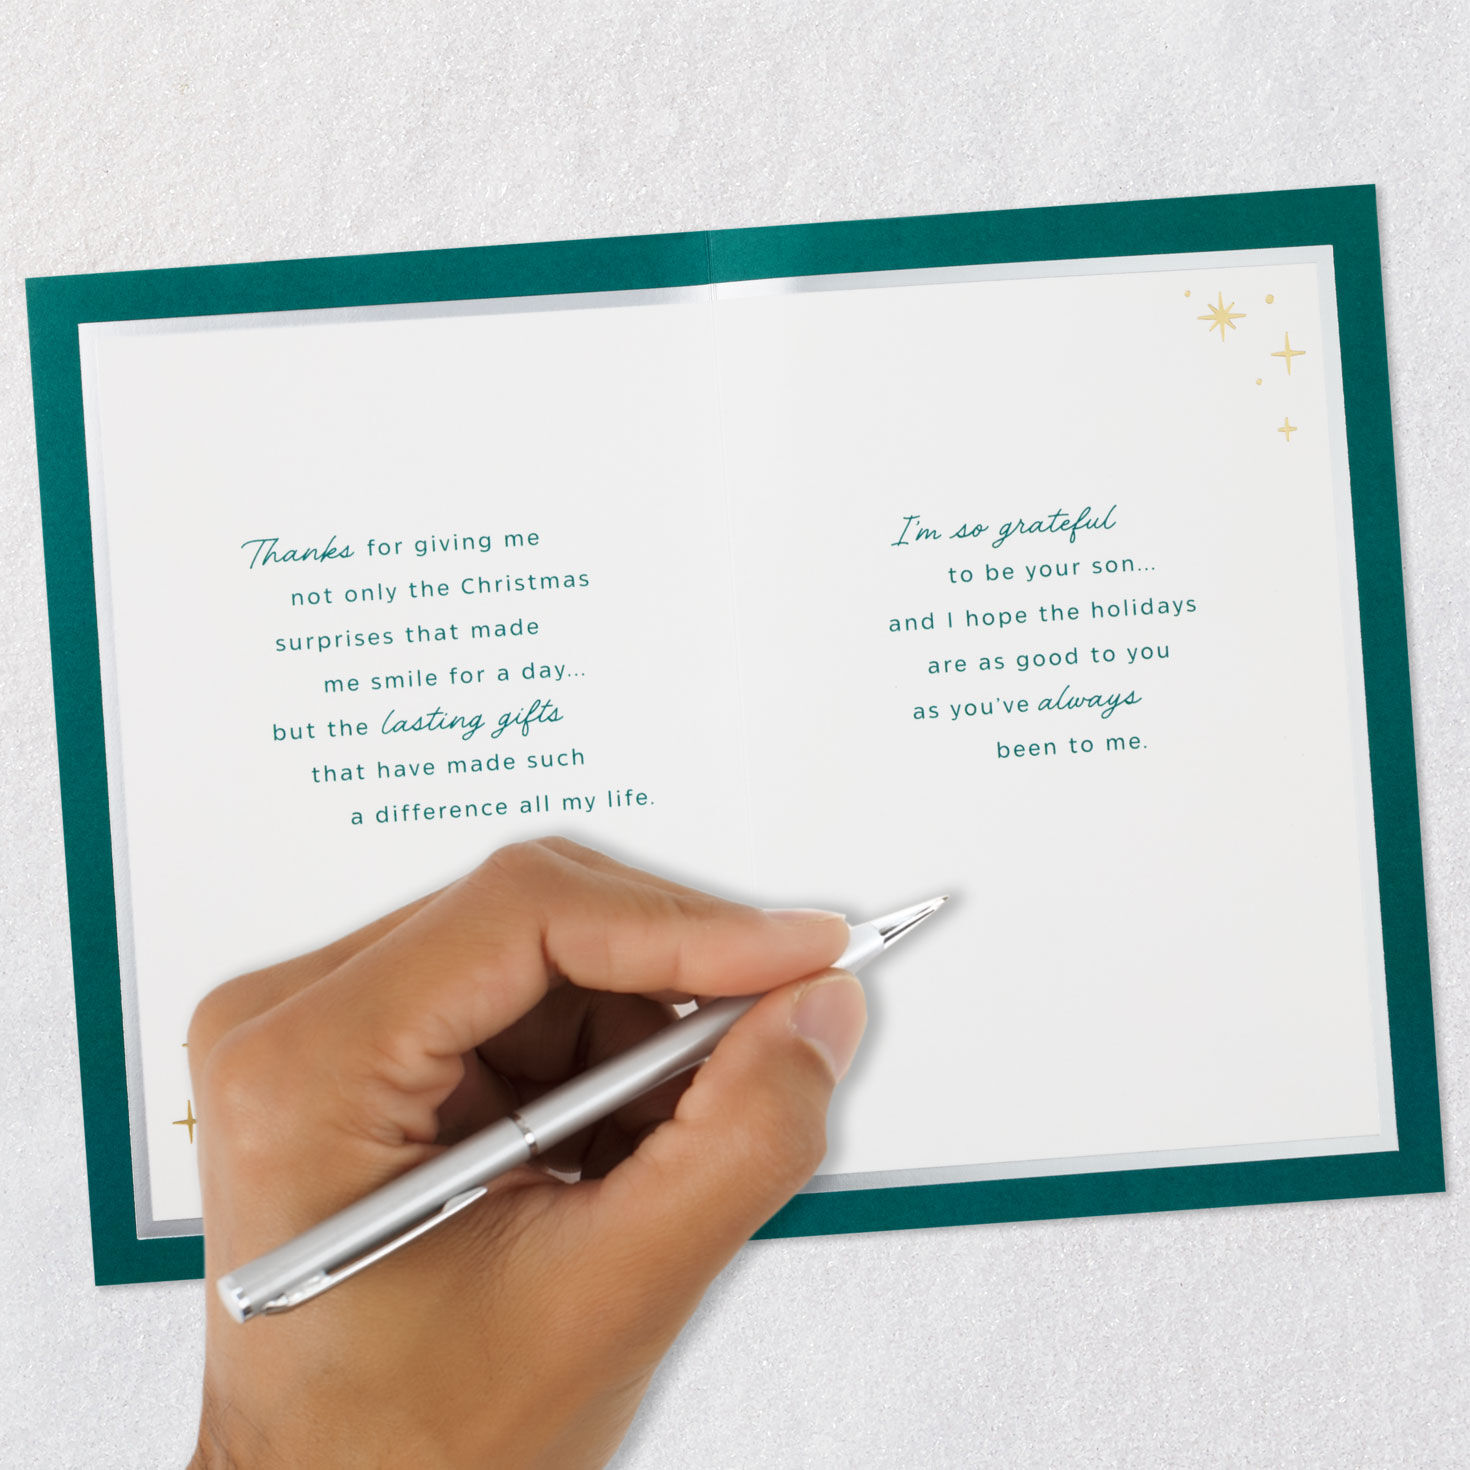 Thanks for giving me
not only the Christmas
surprises that made
me smile for a day...
but the lasting gifts
that have made such
a difference all my life.
I'm so grateful
to be your son...
and I hope the holidays
are as good to you
as you've always
been to me.